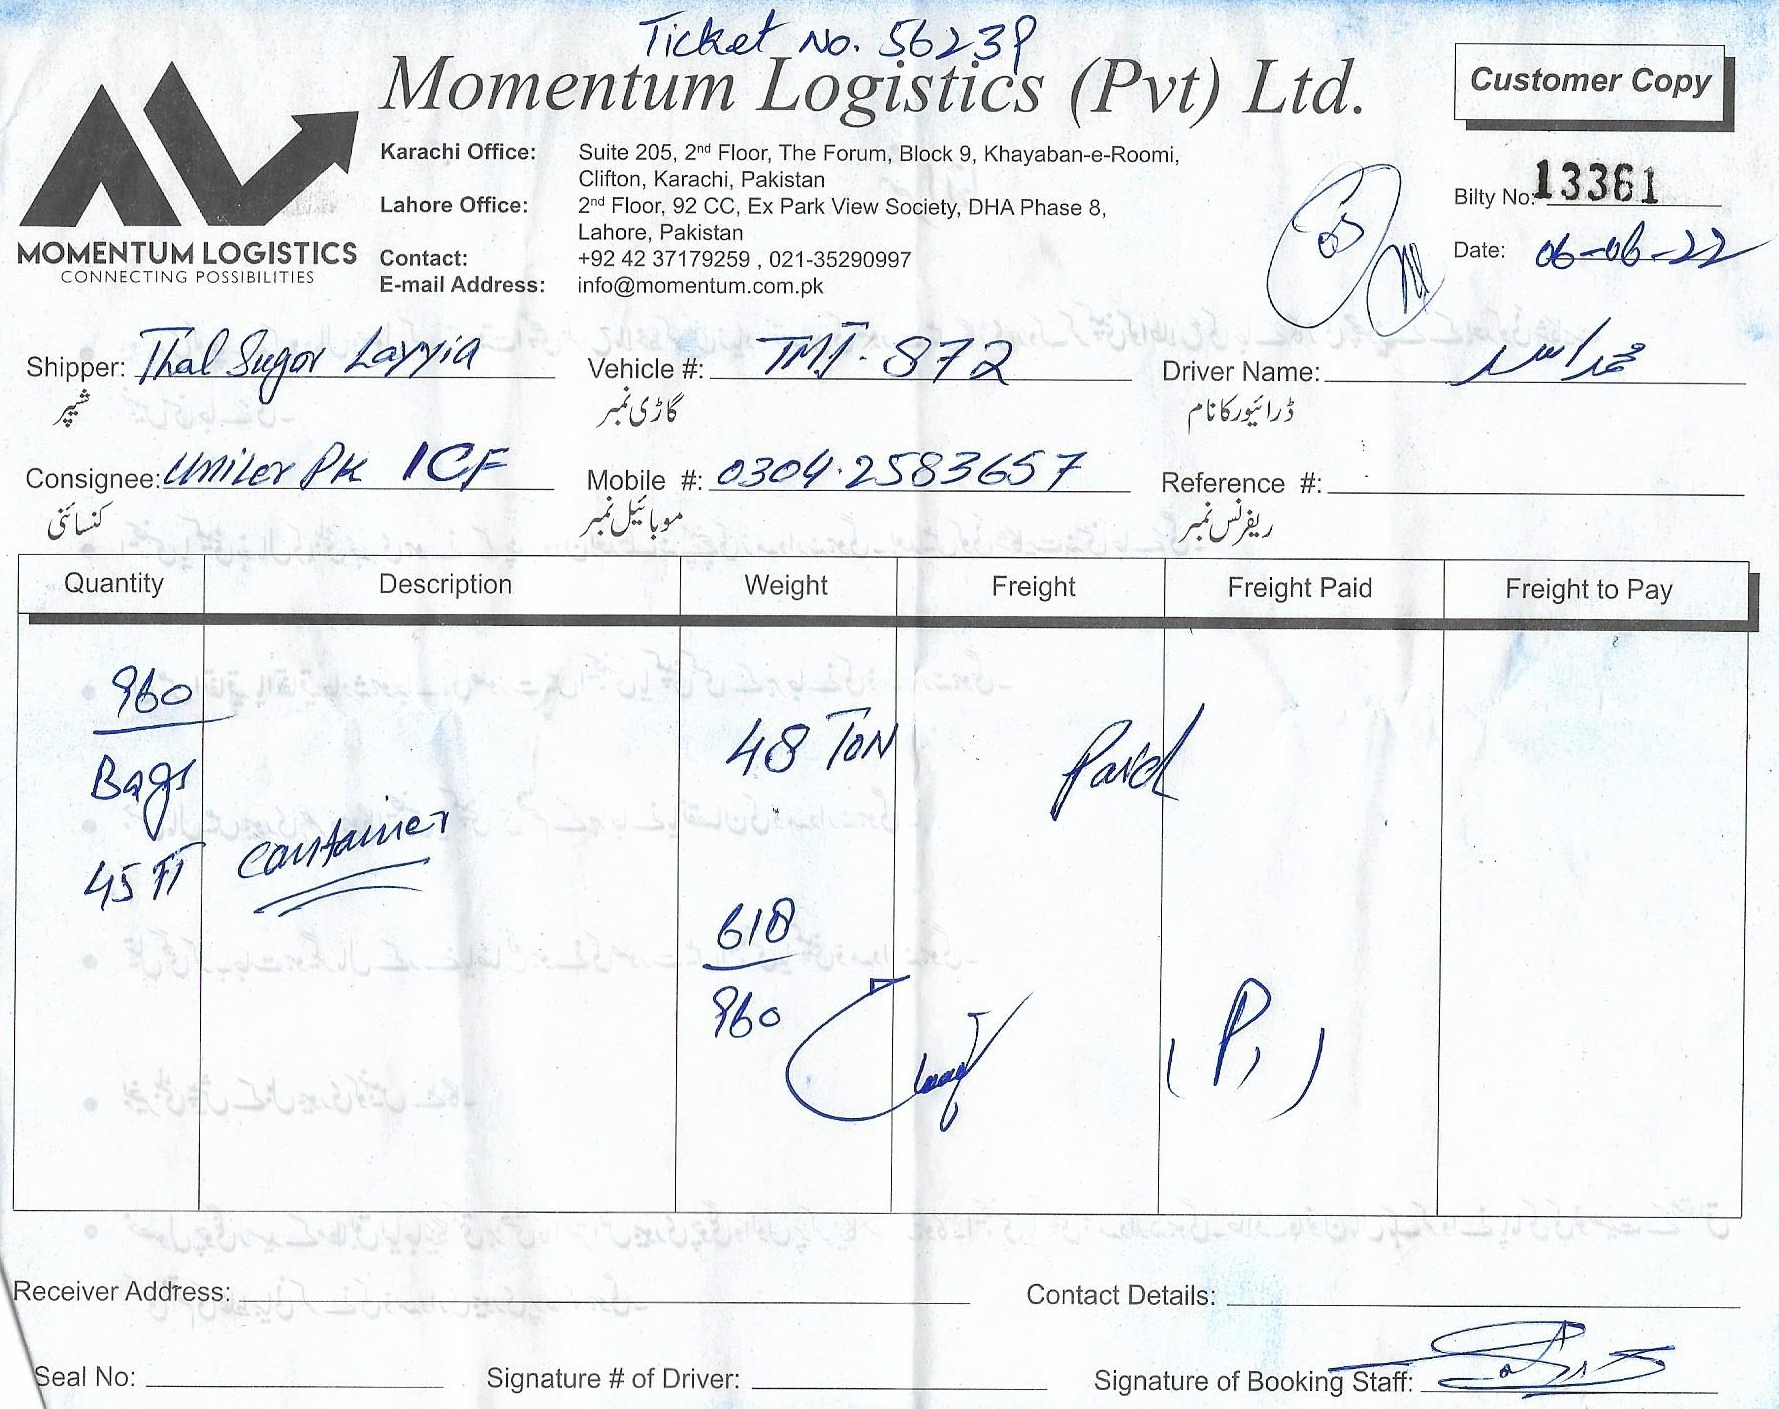 Ticket No. 56239
Momentum Logistics (Pvt) Ltd.
Customer Copy
MOMENTUM LOGISTICS
CONNECTING POSSIBILITIES
Karachi Office: Suite 205, 2nd Floor, The Forum, Block 9, Khayaban-e-Roomi,
Clifton, Karachi, Pakistan
Lahore Office: 2nd Floor, 92 CC, Ex Park View Society, DHA Phase 8,
Lahore, Pakistan
Contact: +92 42 37179259 , 021-35290997
E-mail Address: info@momentum.com.pk
Bilty No: 13361
Date: 06-06-22
Shipper: Thal Sugar Layyia Vehicle #: TMJ-872 Driver Name:
شیپر گاڑی نمبر ڈرائیور کا نام
Consignee: Uniler Pk ICF Mobile #: 0304-2583657 Reference #:
کنسائنی موبائیل نمبر ریفرنس نمبر
Quantity Description Weight Freight Freight Paid Freight to Pay
960
Bags 48 TON Paid
45 FT Container
618
960
(P,)
Receiver Address: Contact Details:
Seal No: Signature # of Driver: Signature of Booking Staff: